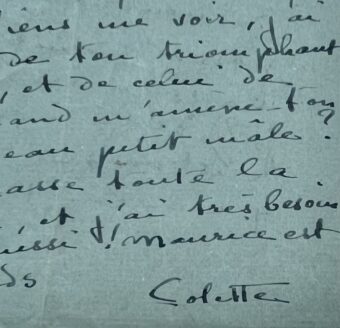 iens me voir, j'ai
de ton triomphant
, et de celui de
and m'amène-t-on
eau petit mâle?
asse toute la
, et j'ai très besoin
ussi! Maurice est
ds
Colette